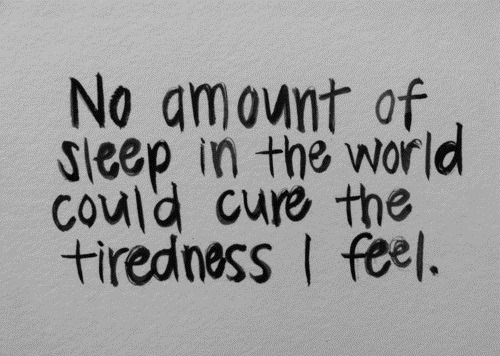 No amount of
sleep in the world
could cure the
tiredness I feel.